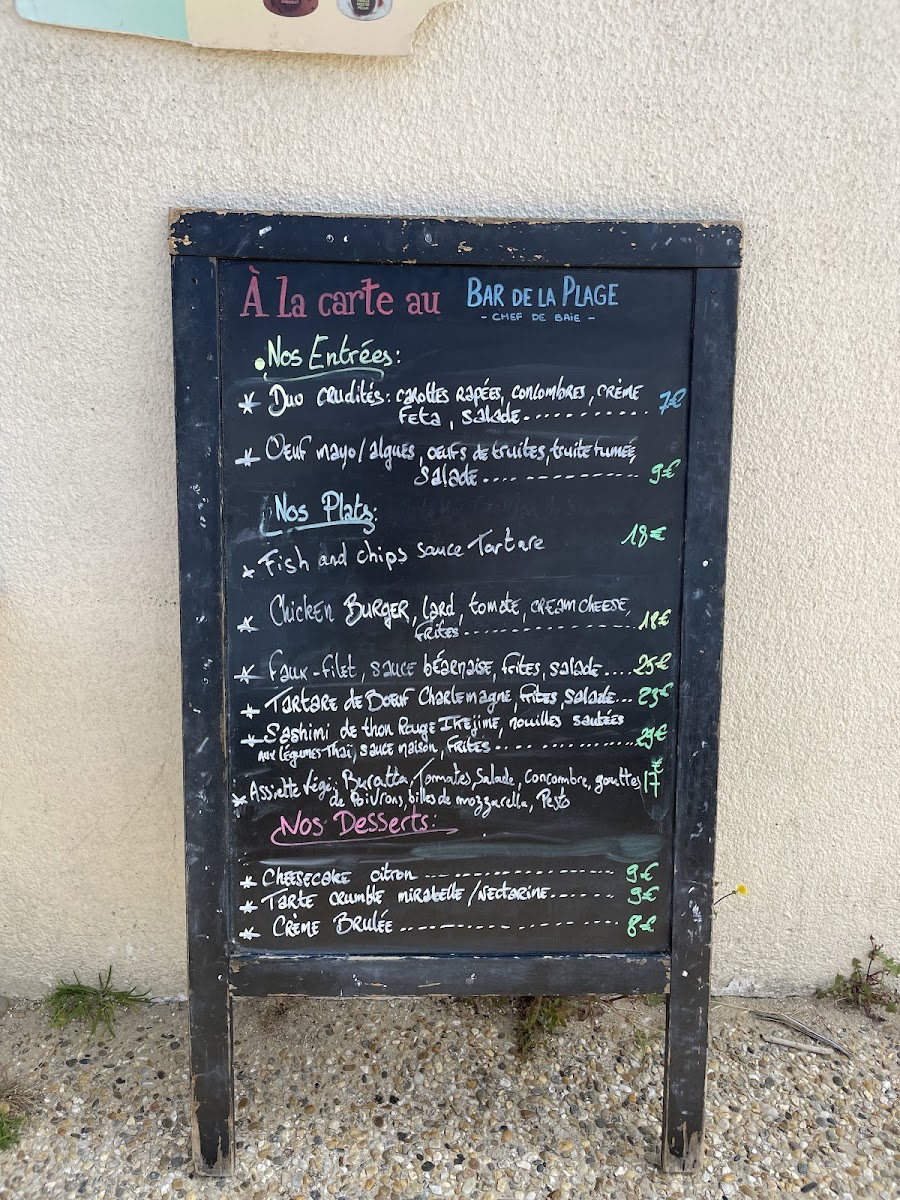 À la carte au BAR DE LA PLAGE
- CHEF DE BAIE -
Nos Entrées:
* Duo crudités: carottes rapées, concombres, crème 7€
Feta, salade
* Oeuf mayo/algues, oeufs de truites, truite fumée,
salade 9€
Nos Plats:
* Fish and chips sauce Tartare 18€
* Chicken BURGER, lard, tomate, cream cheese,
frites 18€
* Faux-filet, sauce béarnaise, frites, salade 25€
* Tartare de Boeuf Charlemagne, frites, salade 23€
* Sashimi de thon Rouge Ikejime, nouilles sautées
aux légumes Thaï, sauce maison, frites 29€
* Assiette végé: Buratta, Tomates, Salade, Concombre, gouttes 17€
de Poivrons, billes de mozzarella, Pesto
Nos Desserts:
* Cheesecake citron 9€
* Tarte crumble mirabelle/Nectarine 9€
* Crème Brulée 8€